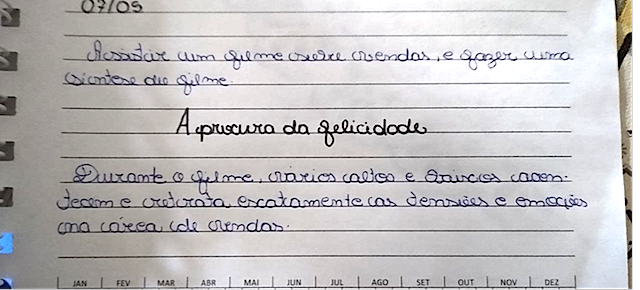 07/05
Assistir um filme sobre vendas, e fazer uma
síntese do filme.
A procura da felicidade
Durante o filme, vários altos e baixos acon-
tecem e retrata exatamente as tensões e emoções
na área de vendas.
JAN FEV MAR ABR MAI JUN JUL AGO SET OUT NOV DEZ